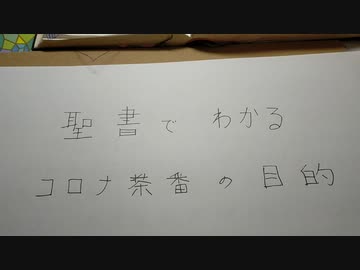 聖書でわかる
コロナ茶番の目的